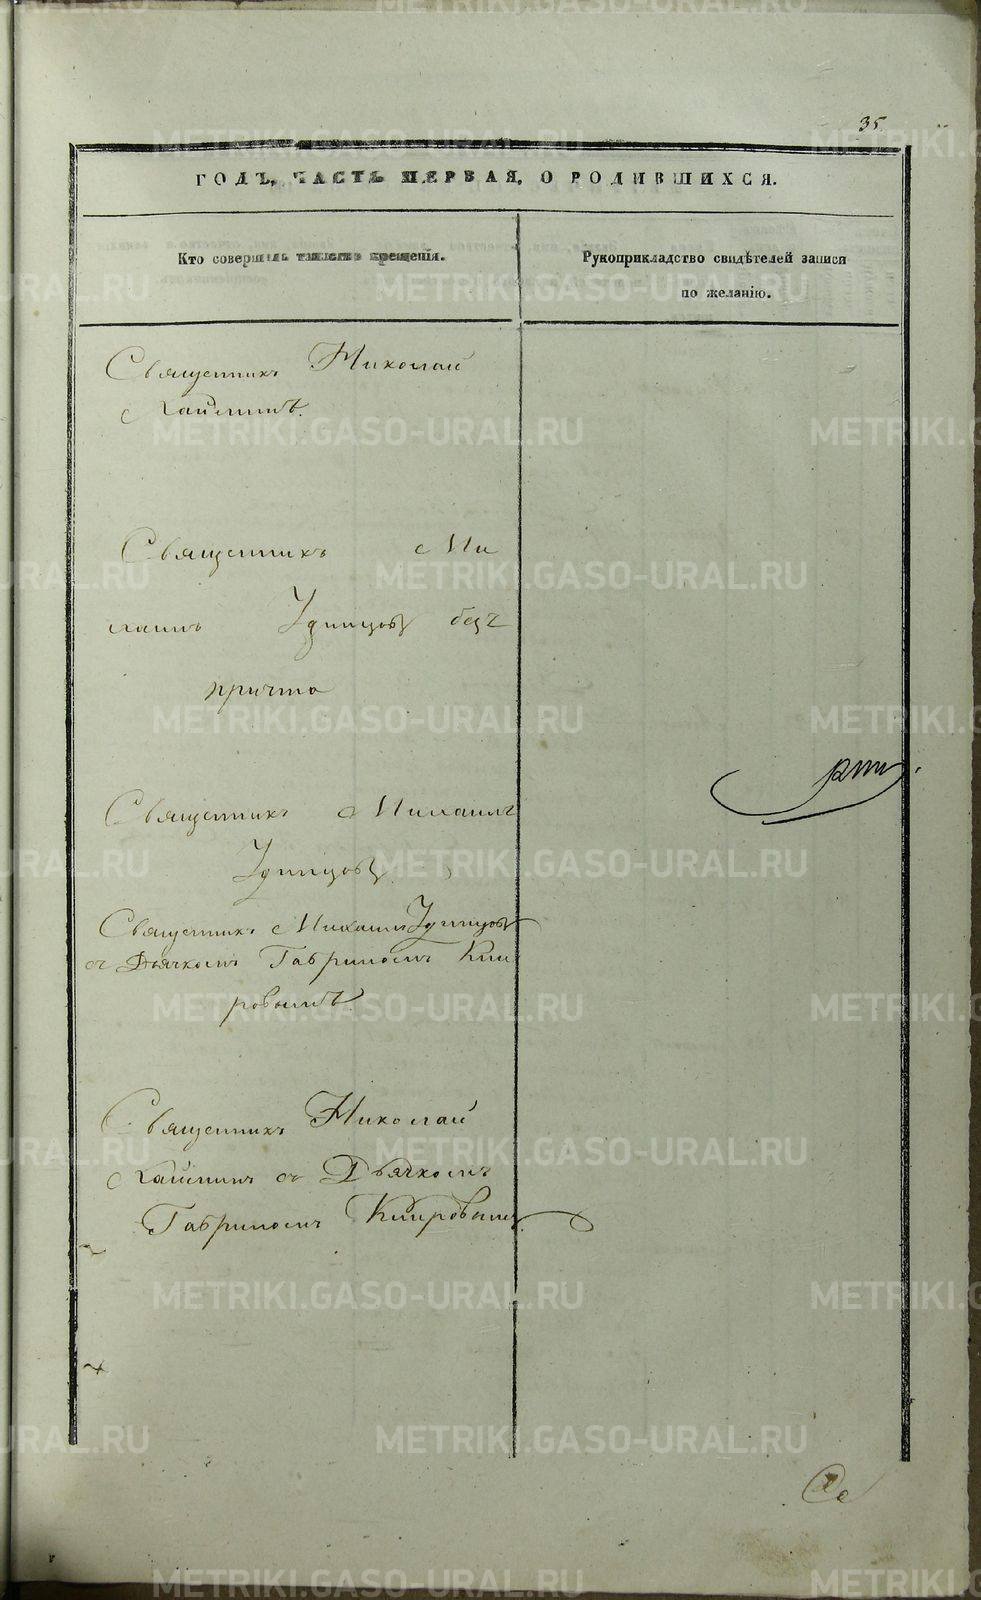 35.
ГОДЪ, ЧАСТЬ ПЕРВАЯ, О РОДИВШИХСЯ.
Кто совершалъ таинство крещенія.
Рукоприкладство свидѣтелей записи
по желанію.
Священникъ Николай
Священникъ Ми
хаилъ Удинцовъ безъ
причта
Священникъ Михаилъ
Удинцовъ
Священникъ Михаилъ Удинцовъ
съ Дьячкомъ Гавриломъ Кии
ровымъ.
Священникъ Николай
съ Дьячкомъ
Гавриломъ Киировымъ
METRIKI.GASO-URAL.RU